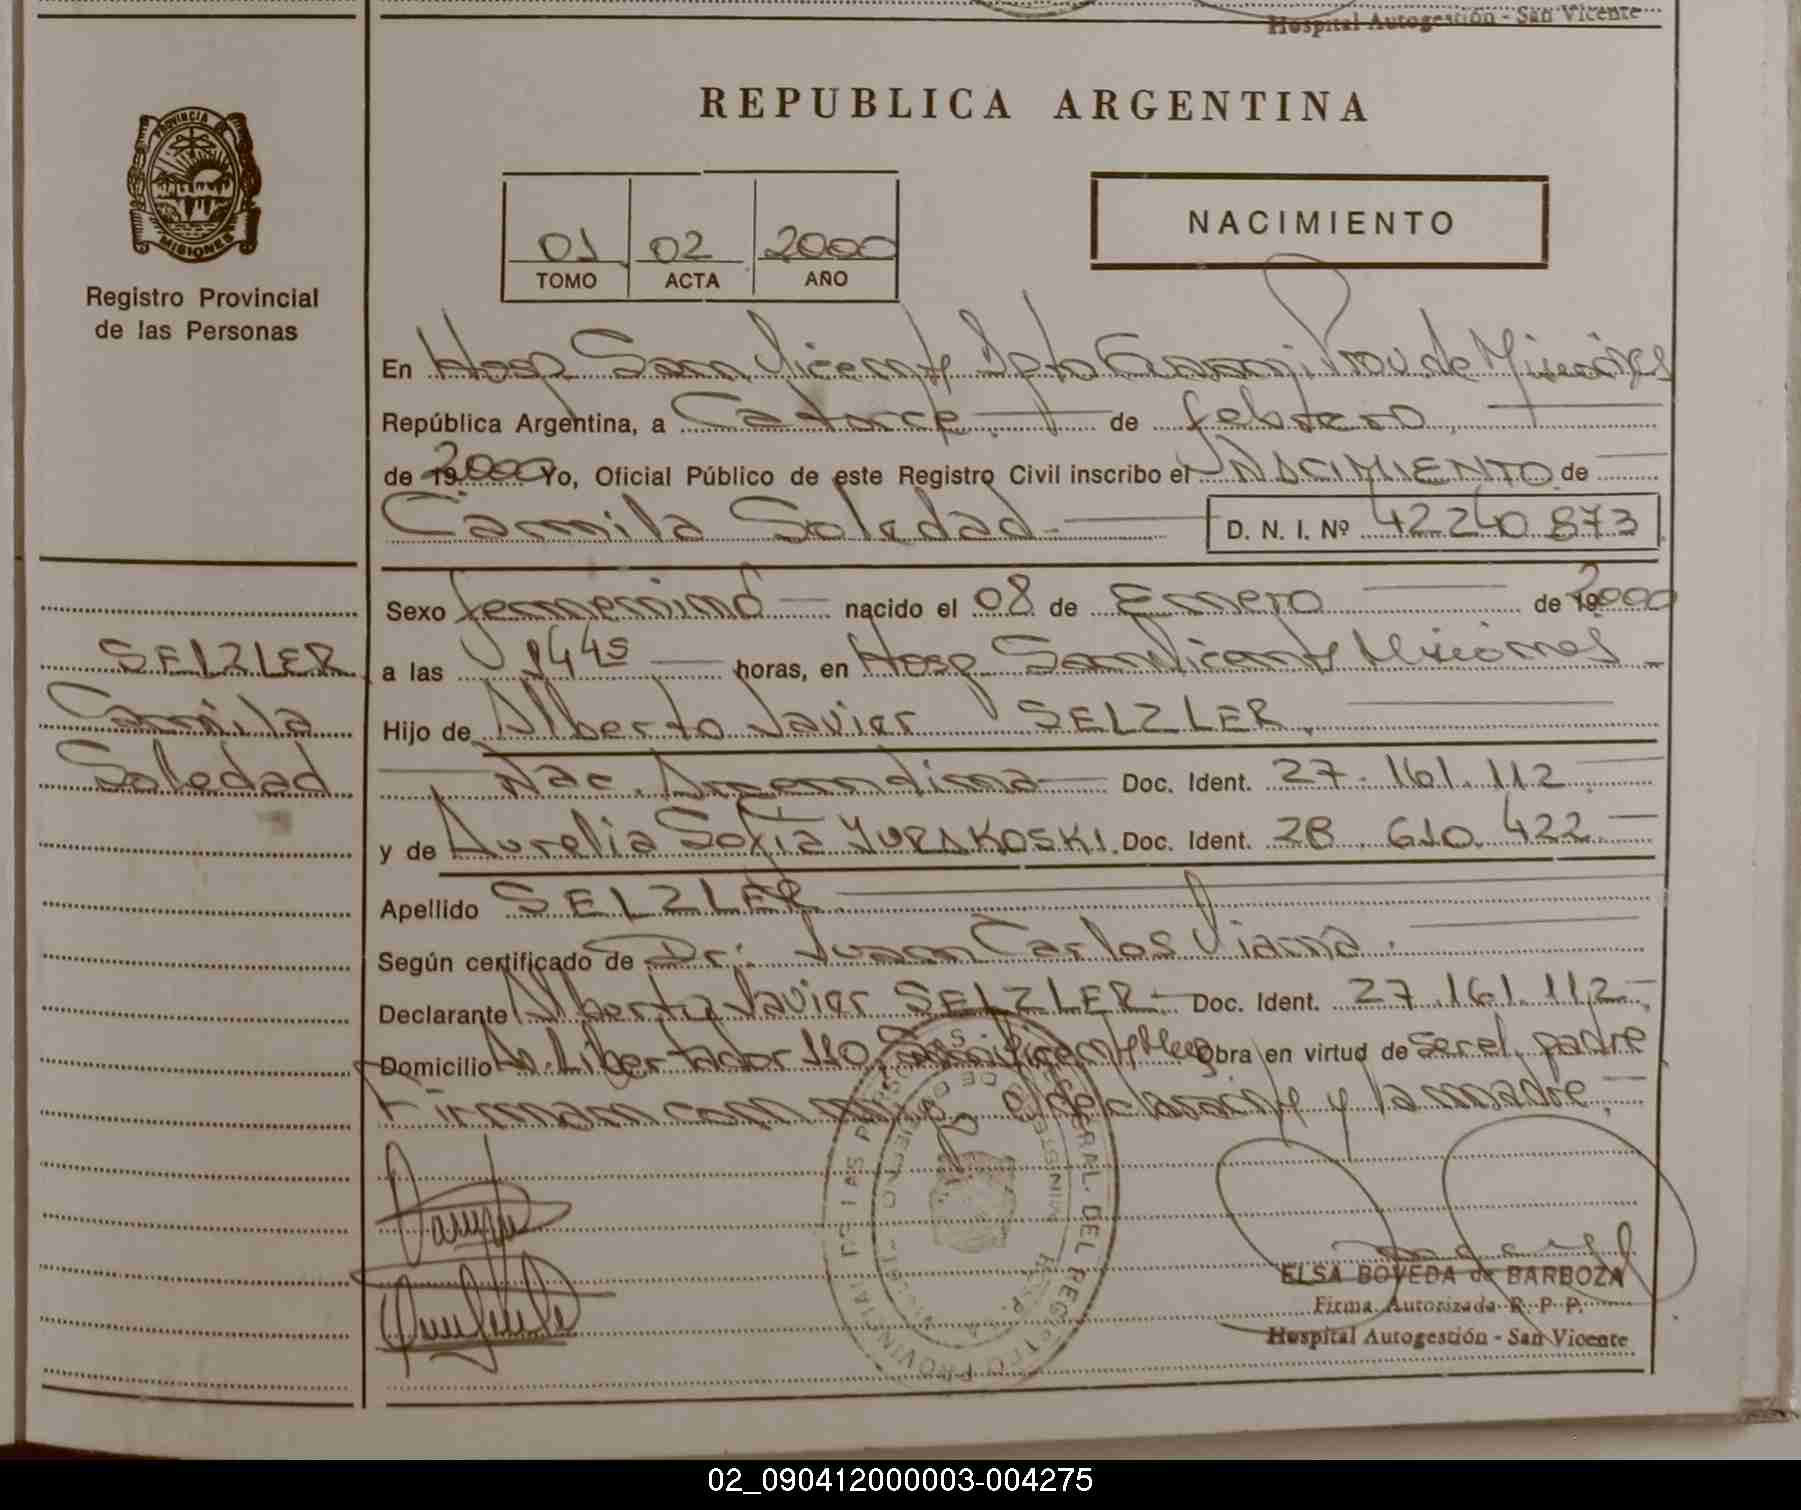 Hospital Autogestión - San Vicente
PROVINCIA DE
MISIONES
Registro Provincial
de las Personas
REPUBLICA ARGENTINA
01 02 2000
TOMO ACTA AÑO
NACIMIENTO
En Hosp San Vicente Dpto Guarani Prov de Misiones
República Argentina, a Catorce de febrero
de 19 2000 Yo, Oficial Público de este Registro Civil inscribo el NACIMIENTO de
Camila Soledad D. N. I. Nº 42240.873
Sexo femenino nacido el 08 de Enero de 19 2000
SELZLER
Camila
Soledad
a las 1445 horas, en Hosp San Vicente Misiones
Hijo de Alberto Javier SELZLER
Nac. Argentina Doc. Ident. 27.161.112
y de Aurelia Sofía YURAKOSKI. Doc. Ident. 28.610.422
Apellido SELZLER
Según certificado de Dr: Juan Carlos Viana.
Declarante Alberto Javier SELZLER Doc. Ident. 27.161.112
Domicilio Av. Libertador 110 San Vicente Obra en virtud de ser el padre
Firman con migo el declarante y la madre.
ELSA BOVEDA de BARBOZA
Firma Autorizada R. P. P.
Hospital Autogestión - San Vicente
02_090412000003-004275